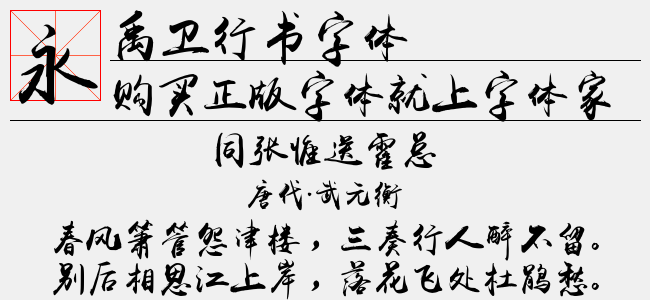 永
禹卫行书字体
购买正版字体就上字体家
同张惟送霍总
唐代·武元衡
春风箫管怨津楼，三奏行人醉不留。
别后相思江上岸，落花飞处杜鹃愁。